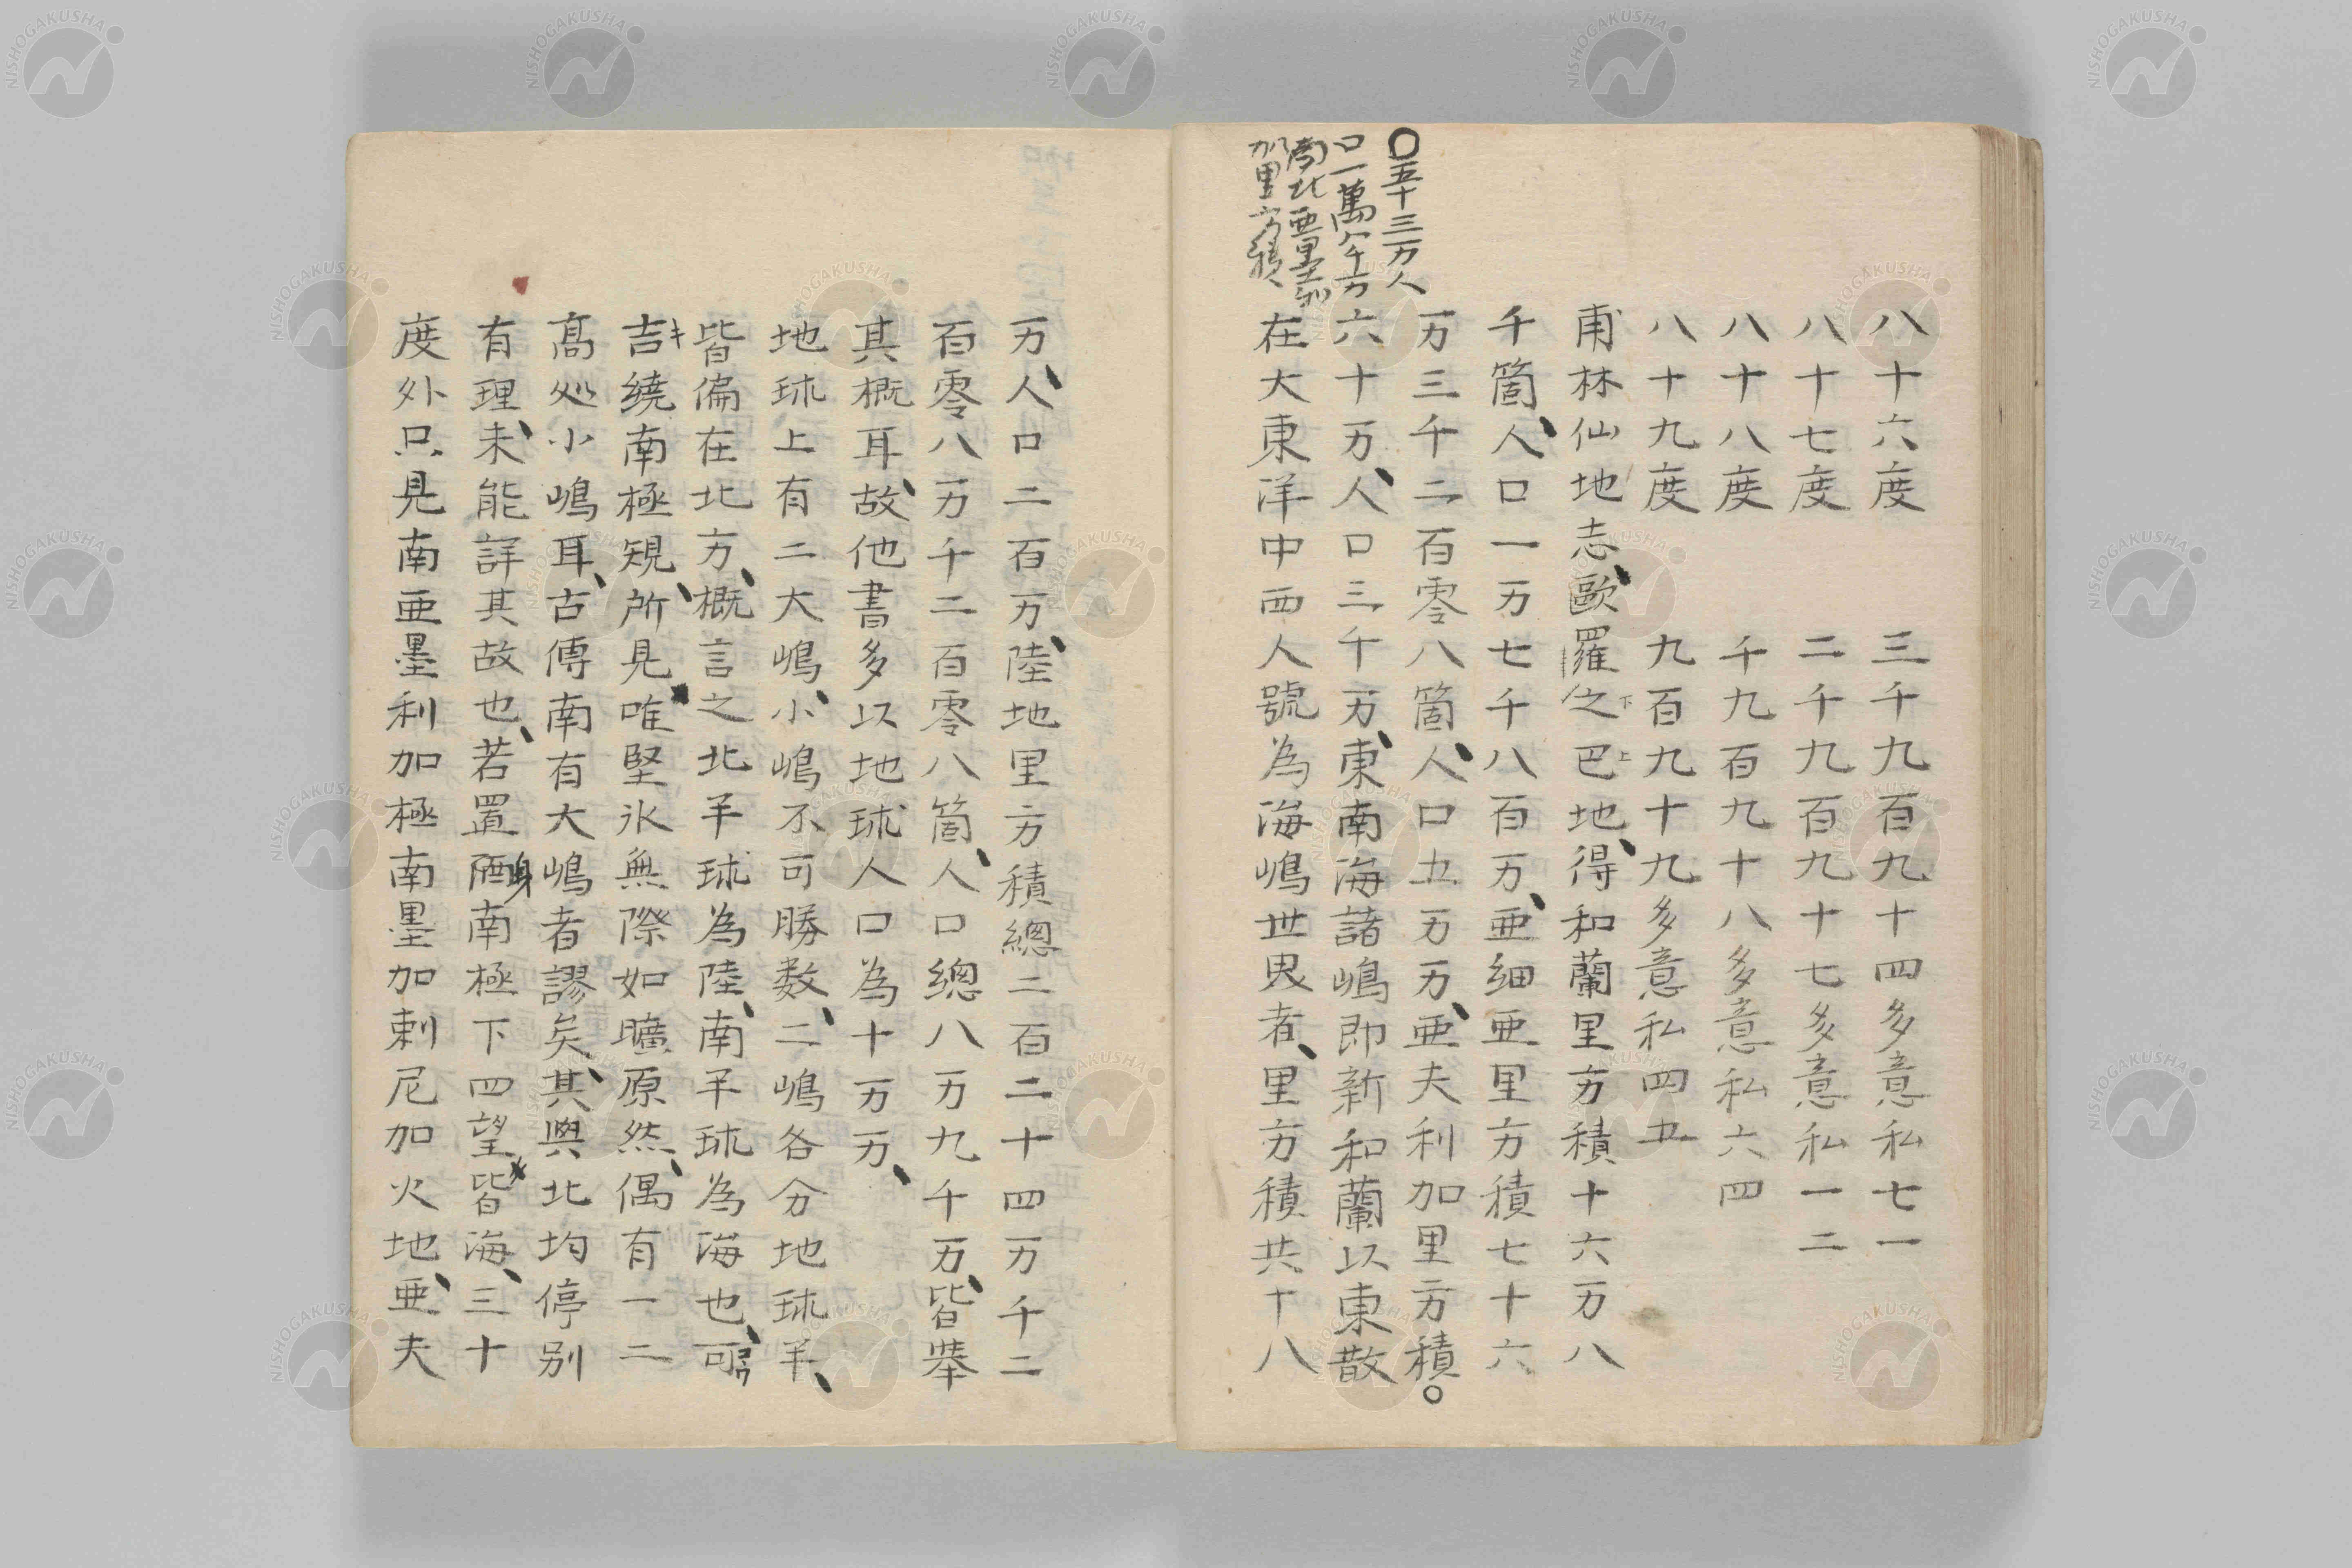 〇五十三万人
口一萬八千万
南北亜墨利
加里方積
八十六度 三千九百九十四多意私七一
八十七度 二千九百九十七多意私一二
八十八度 千九百九十八多意私六四
八十九度 九百九十九多意私四五
甫林仙地志、歐羅之下巴上地、得和蘭里方積十六万八
千箇、人口一万七千八百万、亜细亜里方積七十六
万三千二百零八箇、人口五万万、亜夫利加里方積〇
六十万、人口三千万、東南海諸嶋即新和蘭以東散
在大東洋中西人號為海嶋世界者、里方積共十八
万、人口二百万、陸地里方積總二百二十四万千二
百零八万千二百零八箇、人口總八万九千万、皆举
其概耳、故他書多以地球人口為十万万、
地球上有二大嶋、小嶋不可勝数、二嶋各分地球半、
皆偏在北方、概言之北半球為陸、南半球為海也、可コウ
吉キ繞南極䂓、所見唯堅氷無際如曠原然、偶有一二
髙处小嶋耳、古傳南有大嶋者謬矣、其與北均停别
有理、未能詳其故也、若置身南極下四望皆海、三十
度外只見南亜墨利加極南墨加剌尼加火地、亜夫
NISHOGAKUSHA